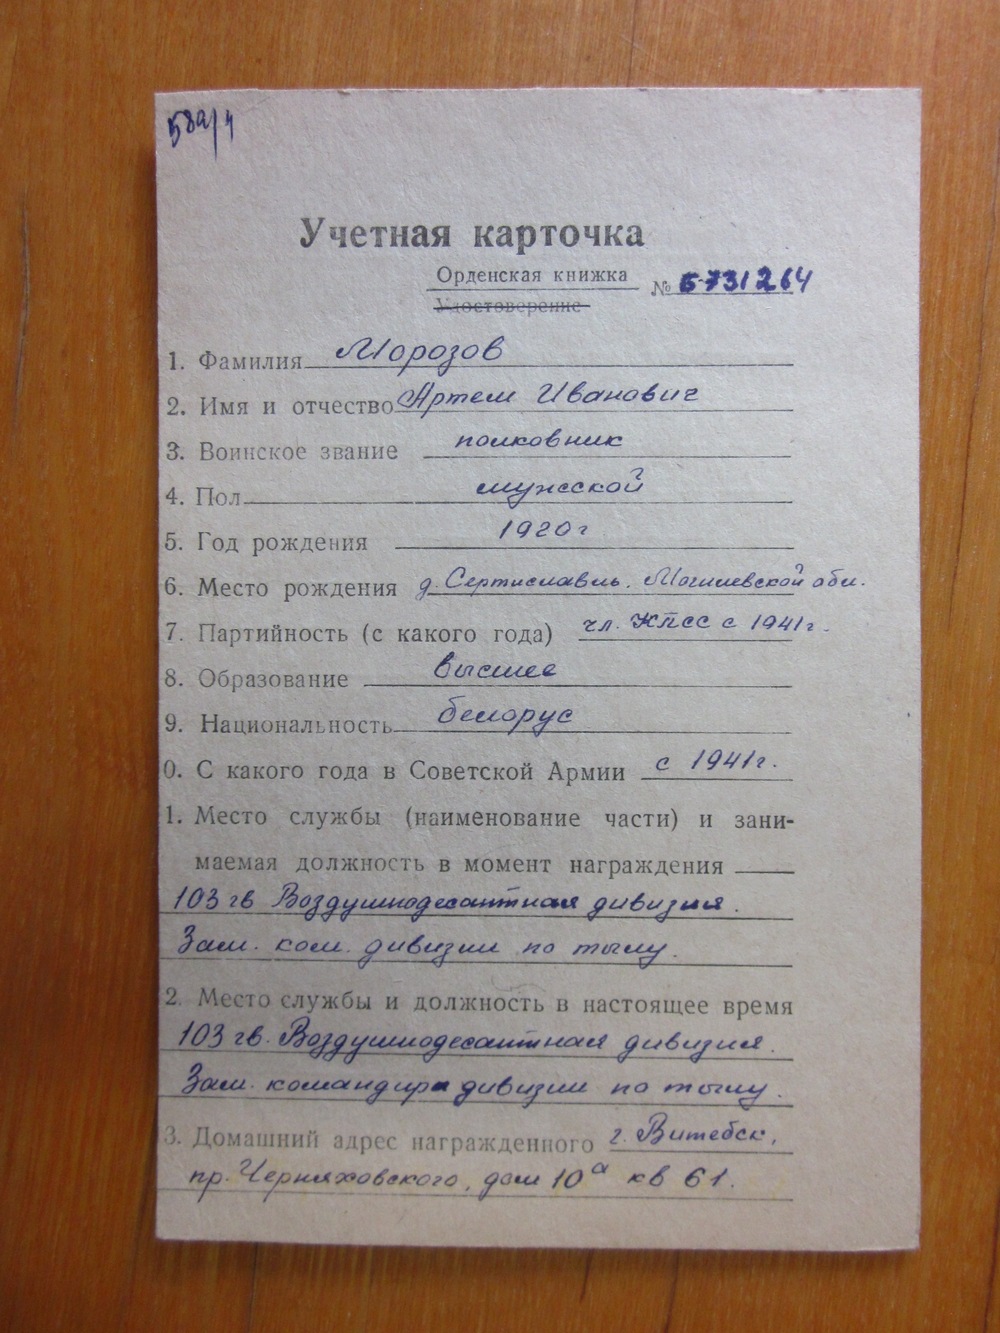 580/4
Учетная карточка
Орденская книжка
№ Б-731264
Удостоверение
1. Фамилия Морозов
2. Имя и отчество Артем Иванович
3. Воинское звание полковник
4. Пол мужской
5. Год рождения 1920 г
6. Место рождения д. Сертиславль. Могилевской обл.
7. Партийность (с какого года) чл. КПСС с 1941 г.
8. Образование высшее
9. Национальность белорус
0. С какого года в Советской Армии с 1941 г.
1. Место службы (наименование части) и зани-
маемая должность в момент награждения
103 гв Воздушнодесантная дивизия.
Зам. ком. дивизии по тылу.
2. Место службы и должность в настоящее время
103 гв. Воздушнодесантная дивизия.
Зам. командира дивизии по тылу.
3. Домашний адрес награжденного г. Витебск,
пр. Черняховского, дом 10а кв 61.